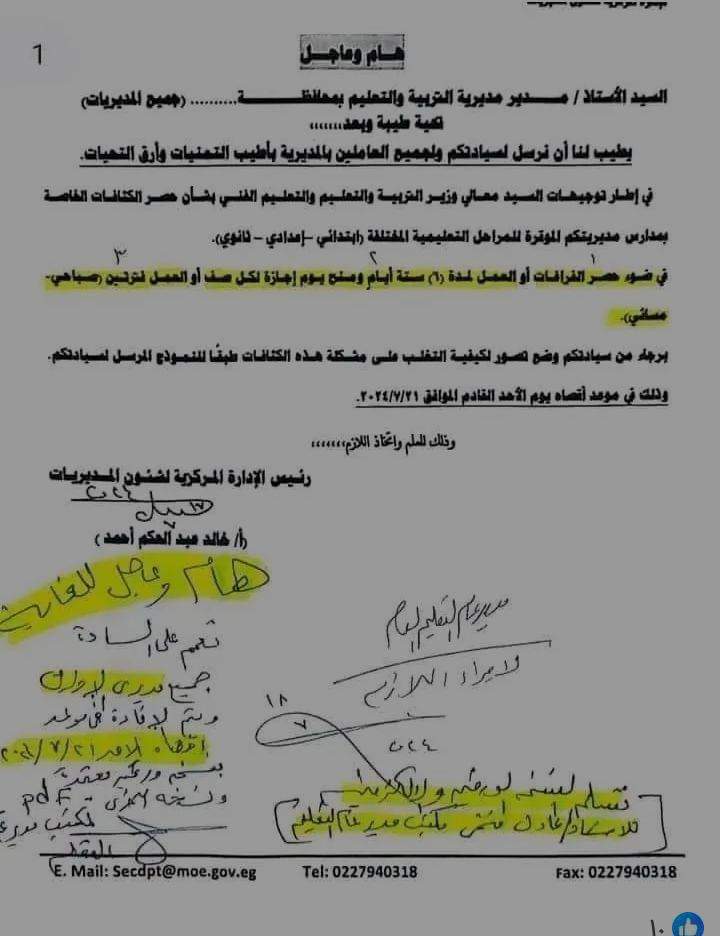 1
هـــام وعاجــل
السيد الأستاذ / مـــدير مديرية التربية والتعليم بمحافظـــــة .......... (جميع المديريات)
تحية طيبة وبعد،،،،،،،
يطيب لنا أن نرسل لسيادتكم ولجميع العاملين بالمديرية بأطيب التمنيات وأرق التحيات.
في إطار توجيهات السيد معالي وزير التربية والتعليم والتعليم الفني بشأن حصر الكثافات الخاصة
بمدارس مديريتكم الموقرة للمراحل التعليمية المختلفة (ابتدائي –إعدادي – ثانوي).
١ ٢ ٣
في ضوء حصر الفراغات أو العمل لمدة (٦) ستة أيام ومنح يوم إجازة لكل صف أو العمل فترتين (صباحي-
مسائي).
برجاء من سيادتكم وضع تصور لكيفية التغلب على مشكلة هذه الكثافات طبقًا للنموذج المرسل لسيادتكم.
وذلك في موعد أقصاه يوم الأحد القادم الموافق ٢٠٢٤/٧/٢١.
وذلك للعلم واتخاذ اللازم،،،،،،،
رئيس الإدارة المركزية لشئون المديريات
٢٠٢٤
١٧
٧
(أ/ خالد عبد الحكم أحمد)
هام وعاجل للغاية
مدير عام التعليم العام
تعمم على السادة
لإجراء اللازم
جميع مديرى الإدارات
١٨
٧
٢٠٢٤
ويتم الإفادة فى موعد
أقصاه الأحد ٢١/٧/٢٠٢٤
بنسخة ورقية معتمدة
ونسخة pdf
تسلم نسخه ورقيه والالكترونيه
للاستاذ/عادل مكتب مدير عام التعليم
لمكتب مدير
E. Mail: Secdpt@moe.gov.eg Tel: 0227940318 Fax: 0227940318
١٠